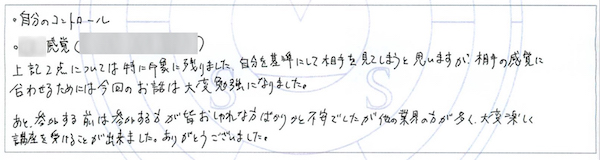 ・自分のコントロール
・ 感覚( )
上記2点については特に印象に残りました。自分を基準にして相手を見てしまうと思いますが、相手の感覚に
合わせるためには今回のお話は大変勉強になりました。
あと、参加する前は参加する方が皆おしゃれな方ばかりかと不安でしたが他の業界の方が多く、大変楽しく
講座を受けることが出来ました。ありがとうございました。